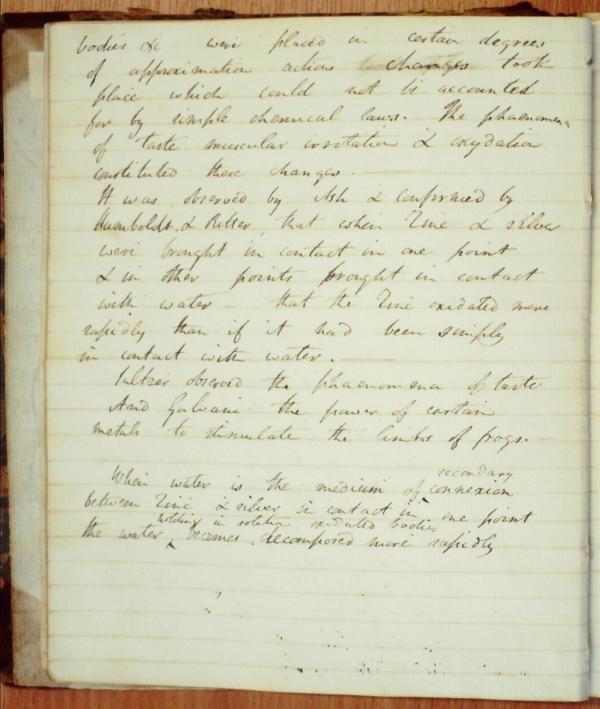 bodies &c were placed in certain degrees
of approximation actions changes took
place which could not be accounted
for by simple chemical laws. The phaenomena
of taste muscular irritation & oxydation
constituted these changes.
It was observed by Ash & confirmed by
Humboldt & Ritter, that when Zinc & silver
were brought in contact in one point
& in other points brought in contact
with water – that the Zinc oxidated more
rapidly than if it had been simply
in contact with water. –
Sultzer observed the phaenomena of taste
And Galvani the power of certain
metals to stimulate the limbs of frogs. –
secondary
When water is the medium of connexion
between Zinc & silver in contact in one point
holding in solution oxidated bodies
the water becomes decomposed more rapidly